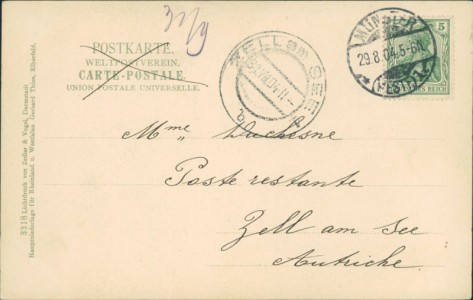 31/9
POSTKARTE.
WELTPOSTVEREIN.
CARTE-POSTALE.
UNION POSTALE UNIVERSELLE.
ZELL am SEE
MÜNSTER
29.8.04.5-6N.
*(WESTF.)1.*
5
DEUTSCHES REICH
Mme Duchesne
Poste restante
Zell am See
Autriche.
3318 Lichtdruck von Zedler & Vogel, Darmstadt
Hauptniederlage für Rheinland u. Westfalen Gerhard Thien, Elberfeld.